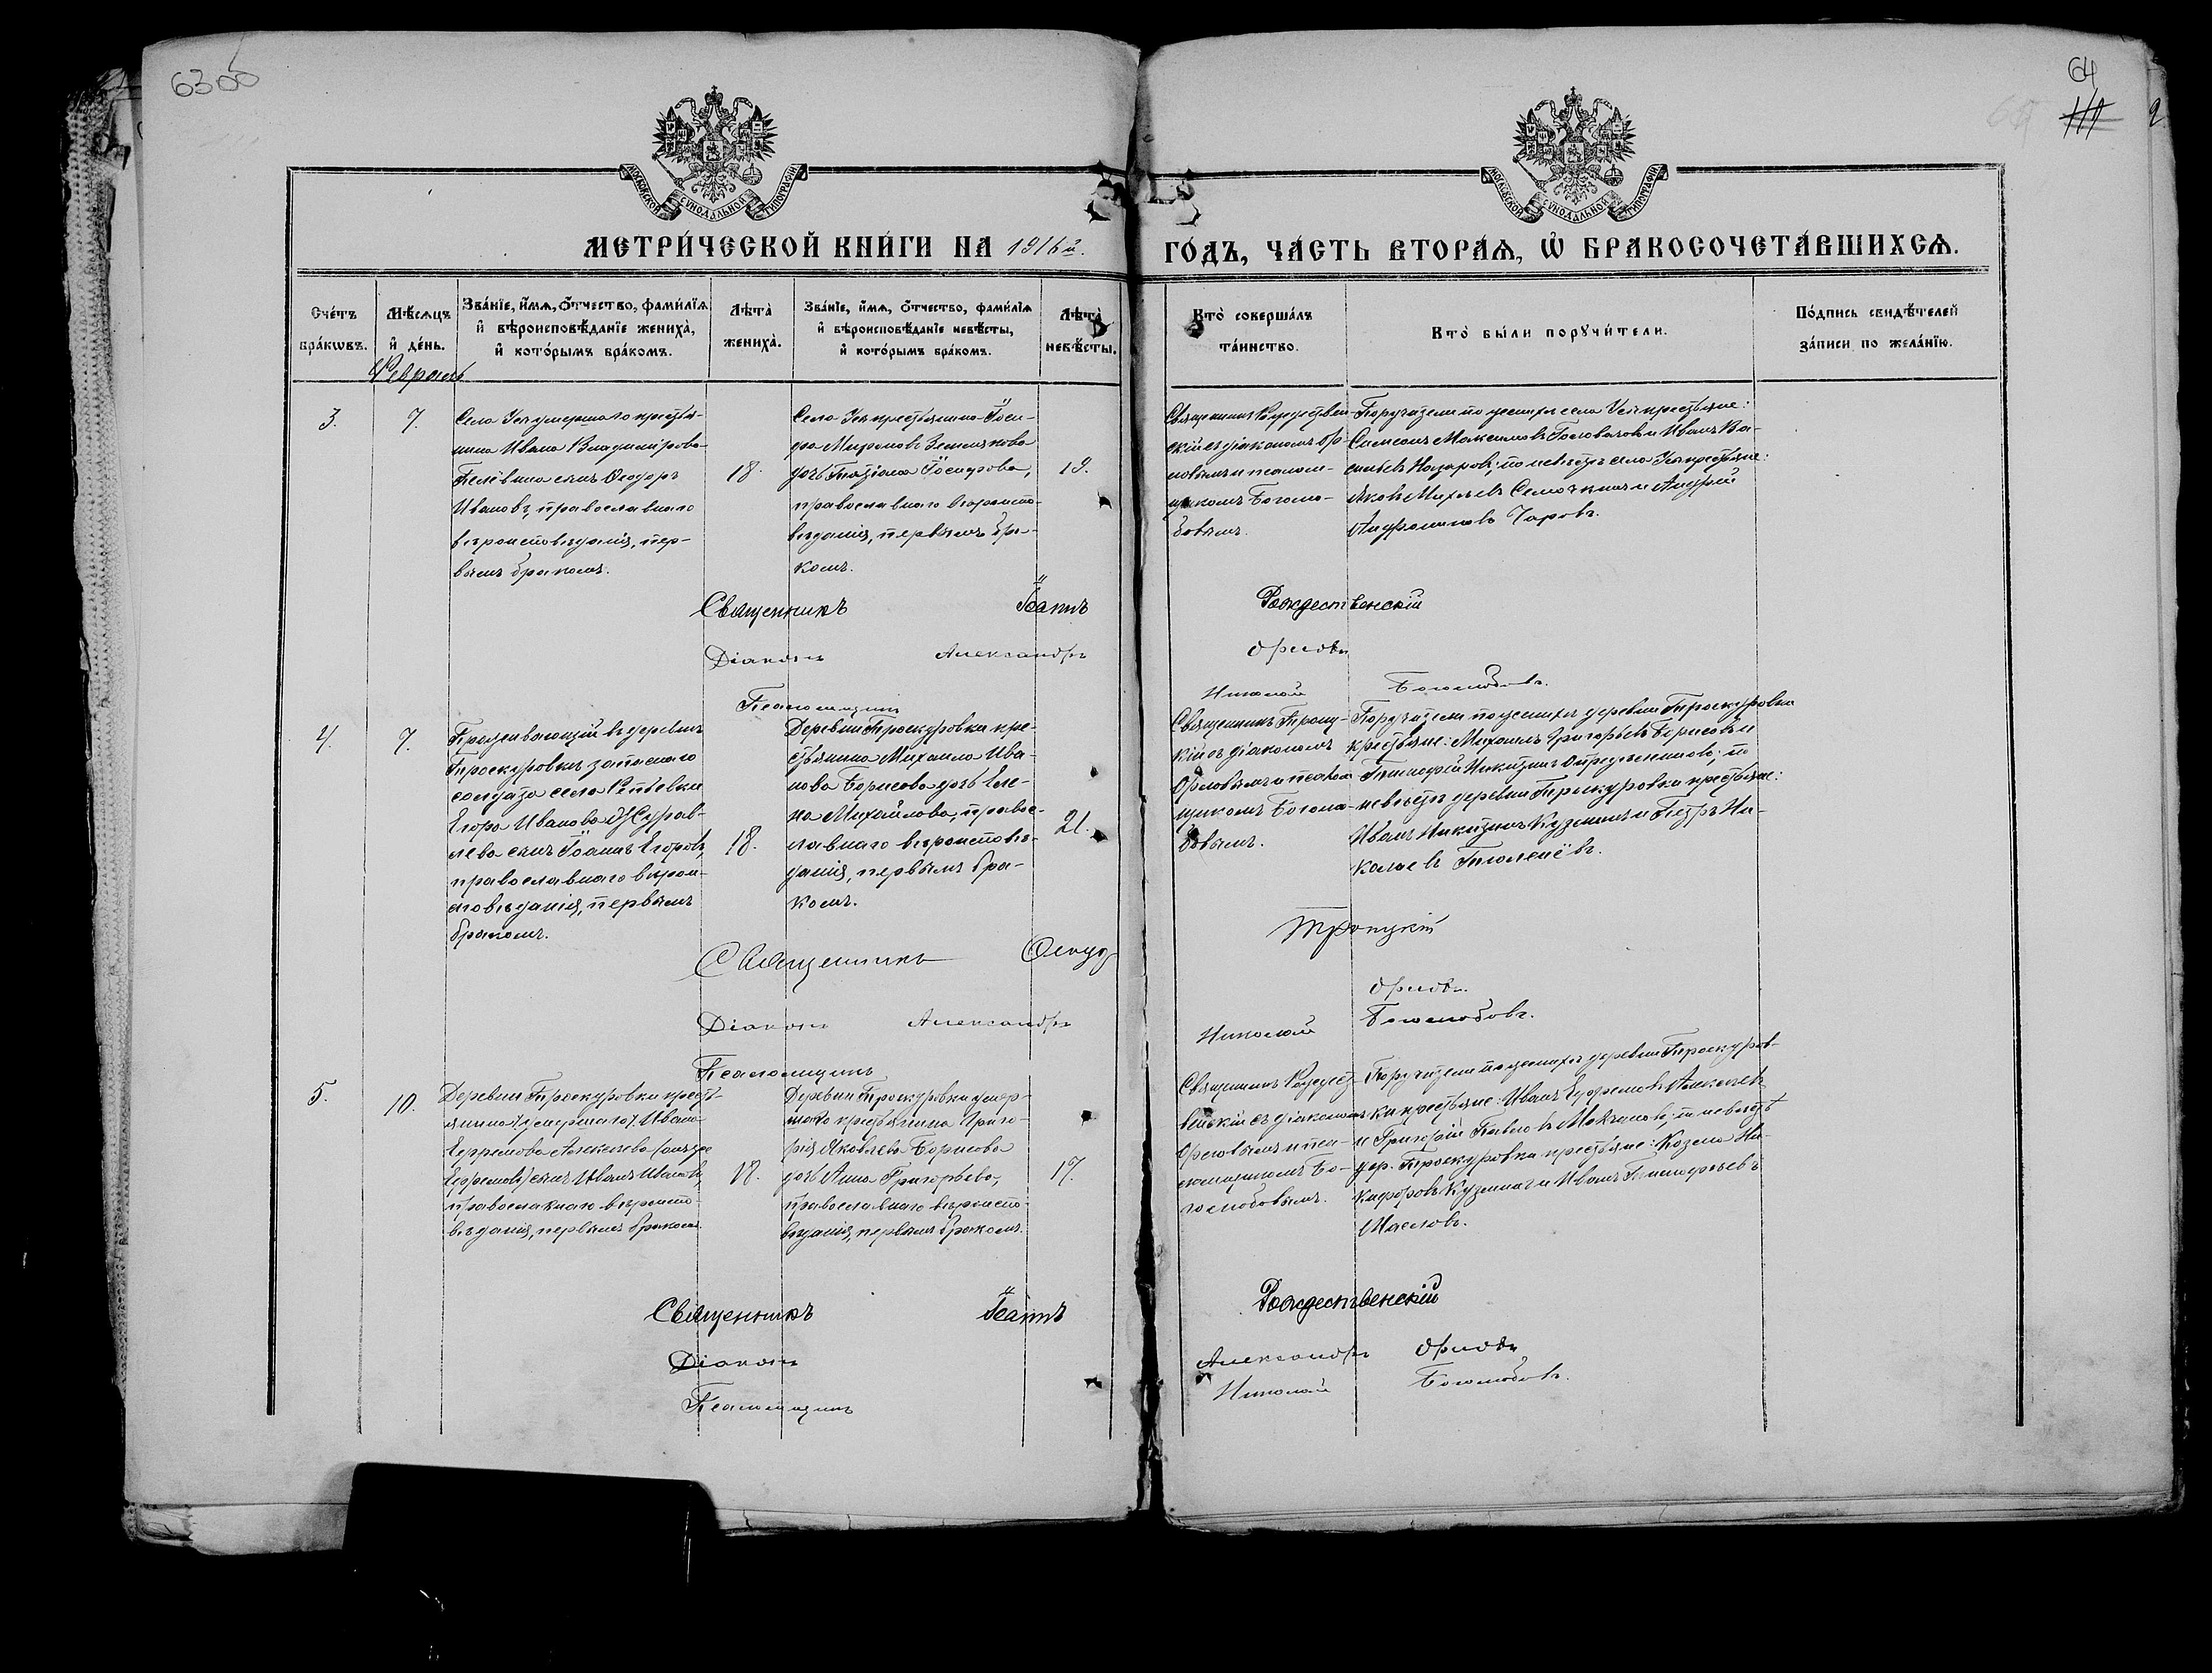 63 об
64
МОСКОВСКОЙ СУНОДАЛЬНОЙ ТИПОГРАФІИ
МОСКОВСКОЙ СУНОДАЛЬНОЙ ТИПОГРАФІИ
МЕТРИ́ЧЕСКОЙ КНИ́ГИ НА 1916й. ГО́ДЪ, ЧА́СТЬ ВТОРА́Ѧ, Ѽ БРАКОСОЧЕТА́ВШИХСѦ.
Сче́тъ
бра́кѡвъ.
Мѣ́сѧцъ
и҆ де́нь.
Зва́нїе, и҆́мѧ, ѻ҆́тчество, фами́лїѧ
и҆ вѣроисповѣ́данїе жениха̀,
и҆ кото́рымъ бра́комъ.
Лѣ́та
жениха̀.
Зва́нїе, и҆́мѧ, ѻ҆́тчество, фами́лїѧ
и҆ вѣроисповѣ́данїе невѣ́сты,
и҆ кото́рымъ бра́комъ.
Лѣ́та
невѣ́сты.
Кто̀ соверша́лъ
та́инство.
Кто̀ бы́ли порꙋчи́тели.
По́дпись свидѣ́телей
за́писи по жела́нїю.
Февраль
3.
7.
Села Уея умершаго крестья-
нина Ивана Владимірова
сынъ Ѳеодоръ
Ивановъ, православнаго
вѣроисповѣданія, пер-
вымъ бракомъ.
18.
Села Уея крестьянина Іоси-
фа Миронова Землякова
дочь Татіана Іосифова,
православнаго вѣроиспо-
вѣданія, первымъ бра-
комъ.
19.
Священникъ Рождествен-
скій съ діакономъ Ор-
ловымъ и псалом-
щикомъ Боголю-
бовымъ.
Поручители по женихѣ села Уея крестьяне:
Самсонъ Максимовъ Головачовъ и Иванъ Ва-
сильевъ Назаровъ; по невѣстѣ села Уея крестьяне:
Яковъ Михеевъ Семочкинъ и Андрей
Андрониковъ Чаровъ.
Священникъ Іоаннъ Рождественскій
Діаконъ Александръ Орловъ
Псаломщикъ Николай Боголюбовъ.
4.
7.
Проживающій въ деревнѣ
Проскуровкѣ запаснаго
солдата села Репьевки
Егора Иванова Журав-
лева сынъ Іоаннъ Егоровъ,
православнаго вѣрои-
сповѣданія, первымъ
бракомъ.
18.
Деревни Проскуровки кре-
стьянина Михаила Ива-
нова Борисова дочь Еле-
на Михайлова, право-
славнаго вѣроисповѣ-
данія, первымъ бра-
комъ.
21.
Священникъ Троиц-
кій съ діакономъ
Орловымъ и псалом-
щикомъ Боголю-
бовымъ.
Поручители по женихѣ деревни Проскуровки
крестьяне: Михаилъ Григорьевъ Борисовъ и
Тимофей Никитинъ; по
невѣстѣ деревни Проскуровки крестьяне:
Иванъ Никитинъ Кузминъ и Петръ Ни-
колаевъ Тюленёвъ.
Священникъ Троицкій
Діаконъ Александръ Орловъ.
Псаломщикъ Николай Боголюбовъ.
5.
10.
Деревни Проскуровки кресть-
янина (умершаго) Ивана
Ефремова Алексѣева (онъ же
Ефремовъ) сынъ Иванъ Ивановъ,
православнаго вѣроиспо-
вѣданія, первымъ бракомъ.
18.
Деревни Проскуровки умер-
шаго крестьянина Григо-
рія Яковлева Борисова
дочь Анна Григорьева,
православнаго вѣроиспо-
вѣданія, первымъ бракомъ.
17.
Священникъ Рождест-
венскій съ діакономъ
Орловымъ и пса-
ломщикомъ Бо-
голюбовымъ.
Поручители по женихѣ деревни Проскуров-
ки крестьяне: Иванъ Ефремовъ Алексѣевъ
и Григорій Павловъ; по невѣстѣ
дер. Проскуровки крестьяне: Козьма Ни-
кифоровъ Кузминъ и Иванъ Тимофеевъ
Масловъ.
Священникъ Іоаннъ Рождественскій
Діаконъ Александръ Орловъ
Псаломщикъ Николай Боголюбовъ.